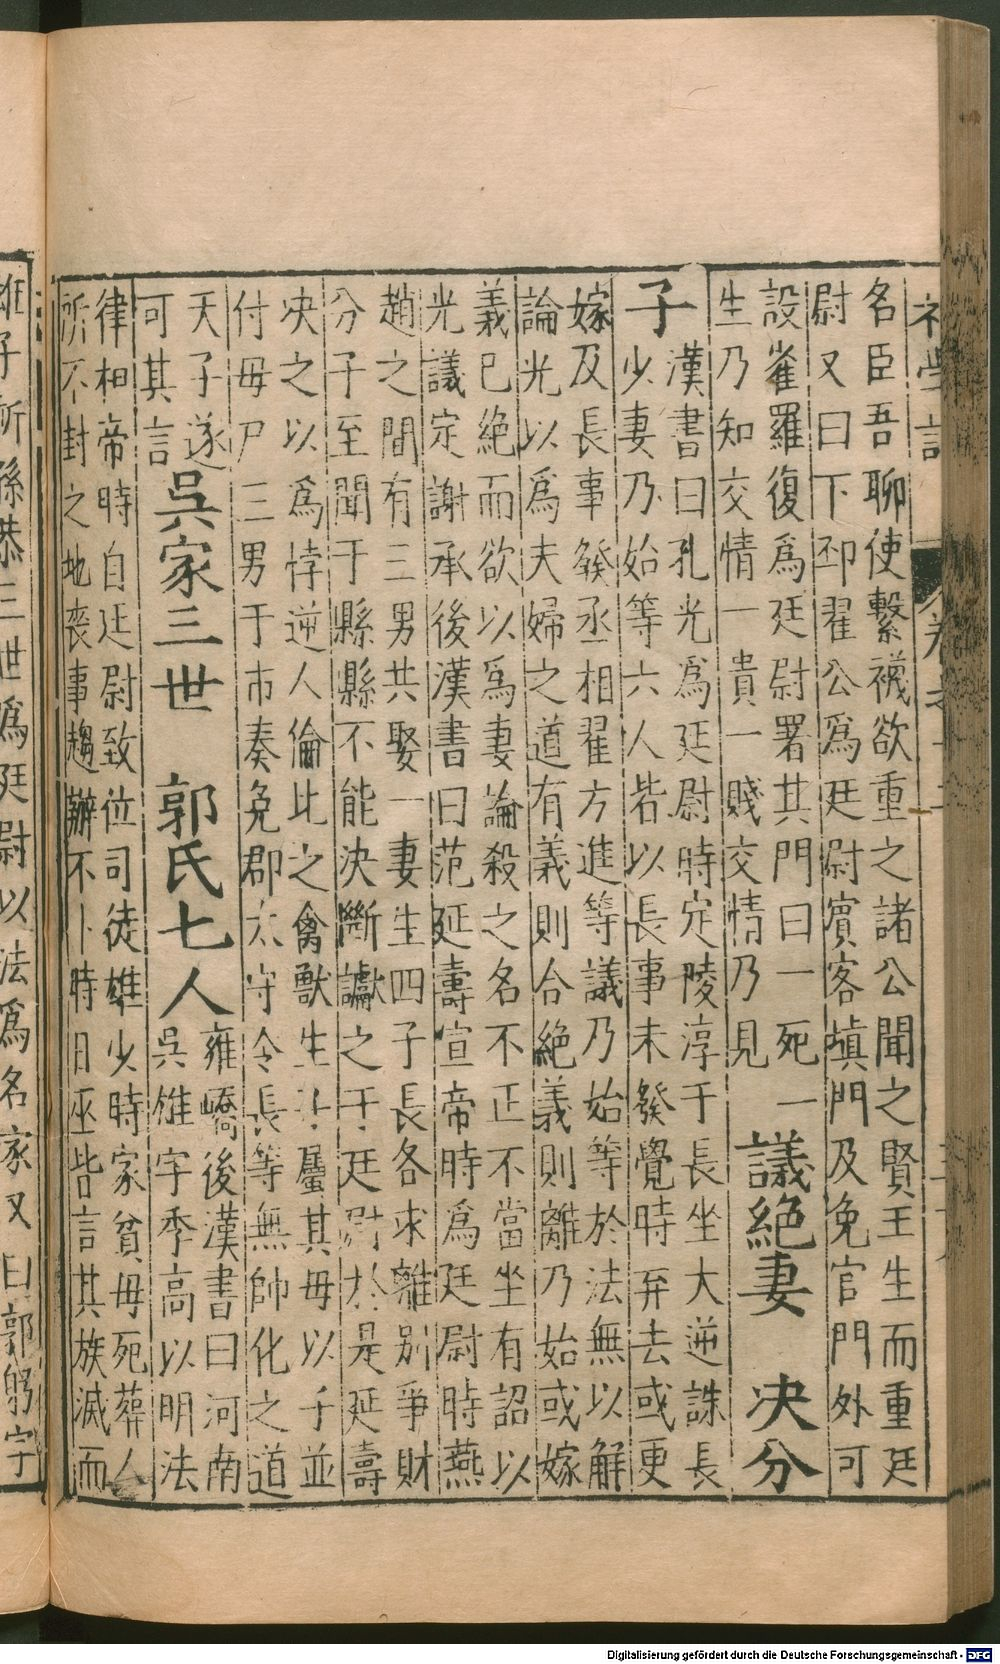 名臣吾聊使繫襪欲重之諸公聞之賢王生而重廷
尉又曰下邳翟公爲廷尉賓客塡門及免官門外可
設雀羅復爲廷尉署其門曰一死一
生乃知交情一貴一賤交情乃見
議絕妻 决分
子
漢書曰孔光爲廷尉時定陵淳于長坐大逆誅長
少妻乃始等六人皆以長事未發覺時弃去或更
嫁及長事發丞相翟方進等議乃始等於法無以解
論光以爲夫婦之道有義則合絕義則離乃始或嫁
義已絕而欲以爲妻論殺之名不正不當坐有詔以
光議定謝承後漢書曰范延壽宣帝時爲廷尉時燕
趙之間有三男共娶一妻生四子長各求離别爭財
分子至聞于縣縣不能决斷讞之于廷尉於是延壽
决之以爲悖逆人倫比之禽獸生子屬其母以子並
付母尸三男于市奏免郡太守令長等無帥化之道
天子遂
可其言
吳家三世 郭氏七人
雍嶠後漢書曰河南
吳雄字季高以明法
律相帝時自廷尉致位司徒雄少時家貧母死葬人
所不封之地喪事趨辦不卜時日巫皆言其族滅而
雄子訢孫恭三世爲廷尉以法爲名家又曰郭躬字
Digitalisierung gefördert durch die Deutsche Forschungsgemeinschaft - DFG